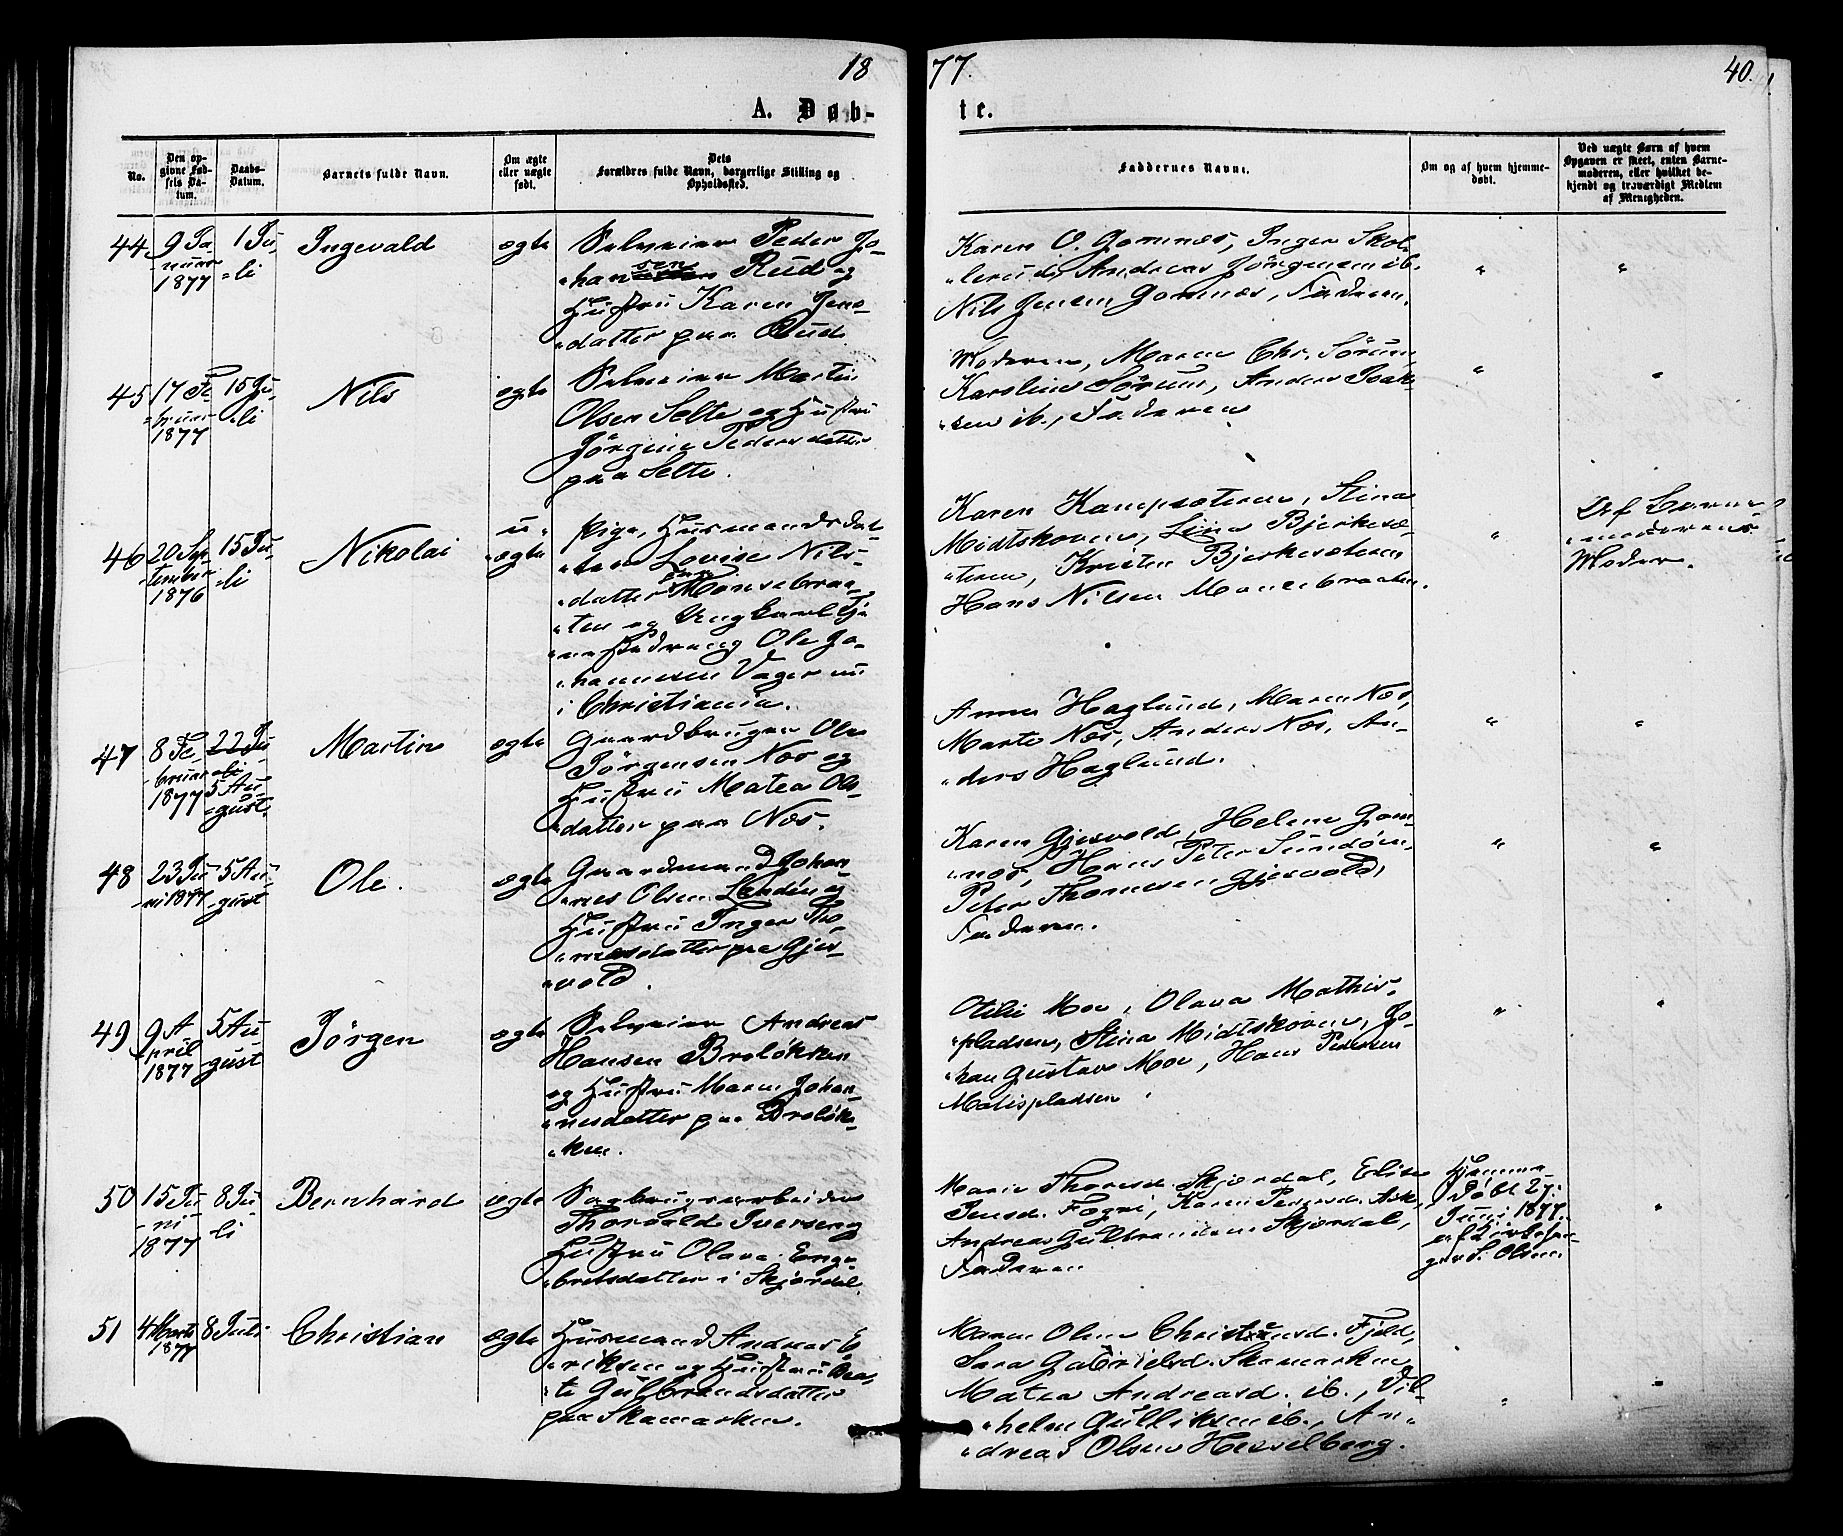 18
77.
40.
A. Døb-
te.
No.
Den op-
givne Fød-
sels Da-
tum.
Daabs-
Datum.
Barnets fulde Navn.
Om ægte
eller uægte
født.
Dets
Forældres fulde Navn, borgerlige Stilling og
Opholdssted.
Faddernes Navne.
Om og af hvem hjemme-
døbt.
Ved uægte Børn af hvem
Opgaven er skeet, enten Barne-
moderen, eller hvilket be-
kjendt og troværdigt Medlem
af Menigheden.
44
9 Ja
-nuar
1877
1 Ju-
-li
Ingevald
ægte
Selveier Peder Jo-
-hansen Rud og
Hustru Karen Jens-
-datter paa Rud
Karen O. Gomnæs, Inger Skol-
-lerud, Andreas Jörgensen ib.
Nils Jensen Gomnæs, Faderen.
"
"
45
17 Fe
-bruar
1877
15 Ju-
-li
Nils
ægte
Selveier Martin
Olsen Selte og Hustru
Jörgine Pedersdatter
paa Selte.
Moderen, Maren Chr. Sörum
Karoline Sörum, Anders Isak-
-sen ib., Faderen
"
"
46
20 Sep-
-tember
1876
15 Ju-
-li
Nikolai
u-
-ægte
Pige, Husmandsdat-
-ter Lovise Nils-
-datter Monsebraa-
-ten og Ungkarl Tje-
-nestedreng Ole Jo-
-hannesen Vager nu
i Christiania.
Karen Kampsæteren, Stina
Midtskoven, Lina Bjerkesæ-
-teren, Kristen Bjerkesæteren
Hans Nilsen Monsebraaten.
"
Af Barne-
-moderens
Moder.
47
8 Fe-
-bruar
1877
22 Ju-
-li
5 Au-
-gust.
Martin
ægte
Gaardbruger Ole
Jörgensen Næs og
Hustru Matea Ols-
-datter paa Næs.
Anne Haglund, Maren Næs,
Marte Næs, Anders Næs, An-
-ders Haglund.
"
"
48
23 Ju-
-ni 1877
5 Au-
-gust
Ole.
ægte
Gaardmand Johan-
-nes Olsen og
Hustru Inger Tho-
-mesdatter paa Gjes-
-vold.
Karen Gjesvold, Helene Gom-
-næs, Hans Peter
Peter Thomesen Gjesvold,
Faderen.
"
"
49
9 A-
-pril
1877
5 Au-
-gust
Jörgen
ægte
Selveier Andreas
Hansen Brolökken
og Hustru Maren Johan-
-nesdatter paa Brolök-
-ken.
Otilie Moe, Olava Mathis-
-pladsen, Stina Midtskoven, Jo-
-han Gustav Moe, Hans Pedersen
Matispladsen.
"
"
50
15 Ju-
-ni
1877
8 Ju-
-li
Bernhard
ægte
Sagbrugsarbeider
Thorvald Iversen og
Hustru Olava Enge-
-bretsdatter i Skjördal.
Marie Thoresd. Skjördal, Elise
Jensd. Fogni, Karen Pedersd. Ask,
Andreas Gulbrandsen Skjördal,
Faderen
Hjemme-
döbt 27.
Juni 1877.
S. Olsen.
"
51
4 Marts
1877
8 Juli
Christian
ægte
Husmand Andreas E-
-riksen og Hustru Bea-
-te Gulbrandsdatter
paa Skamarken.
Maren Olene Christiansd. Fjeld,
Sara Gabrielsd. Skamarken
Matea Andreasd. ib., Vil-
-helm Gulliksen ib., An-
-dreas Olsen Hesselberg.
"
"